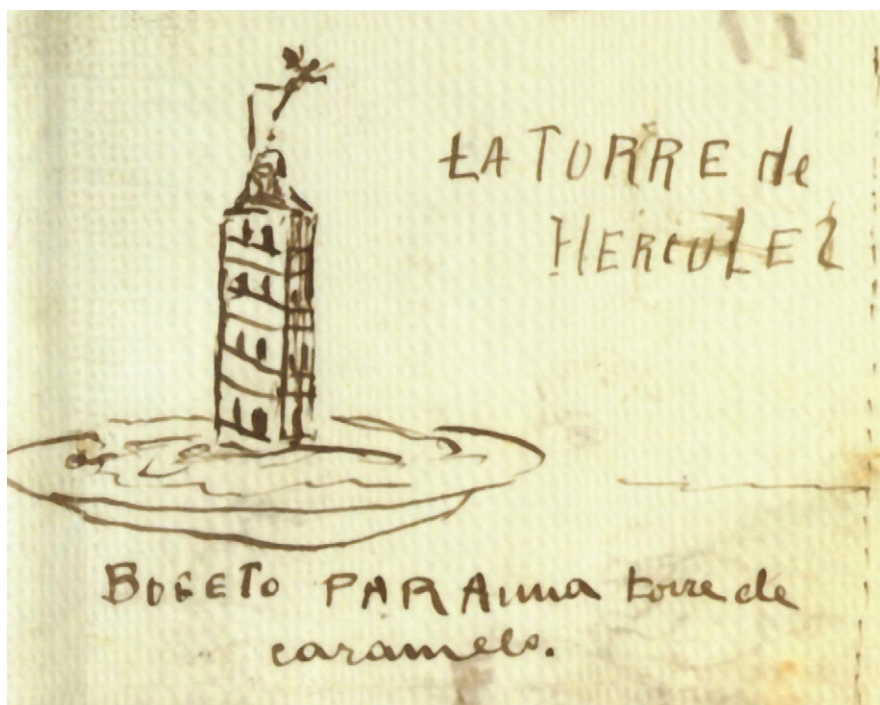 LA TORRE de
HERCULEZ
BOGETO PARA una torre de
caramelo.